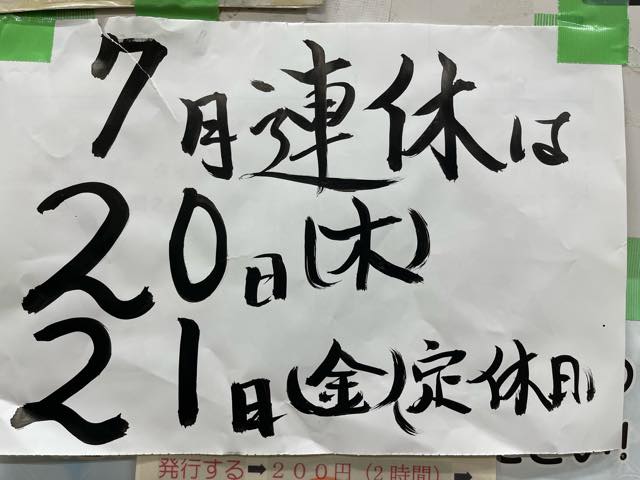 7月連休は
20日(木)
21日(金)定休日
発行する➡200円(2時間)➡